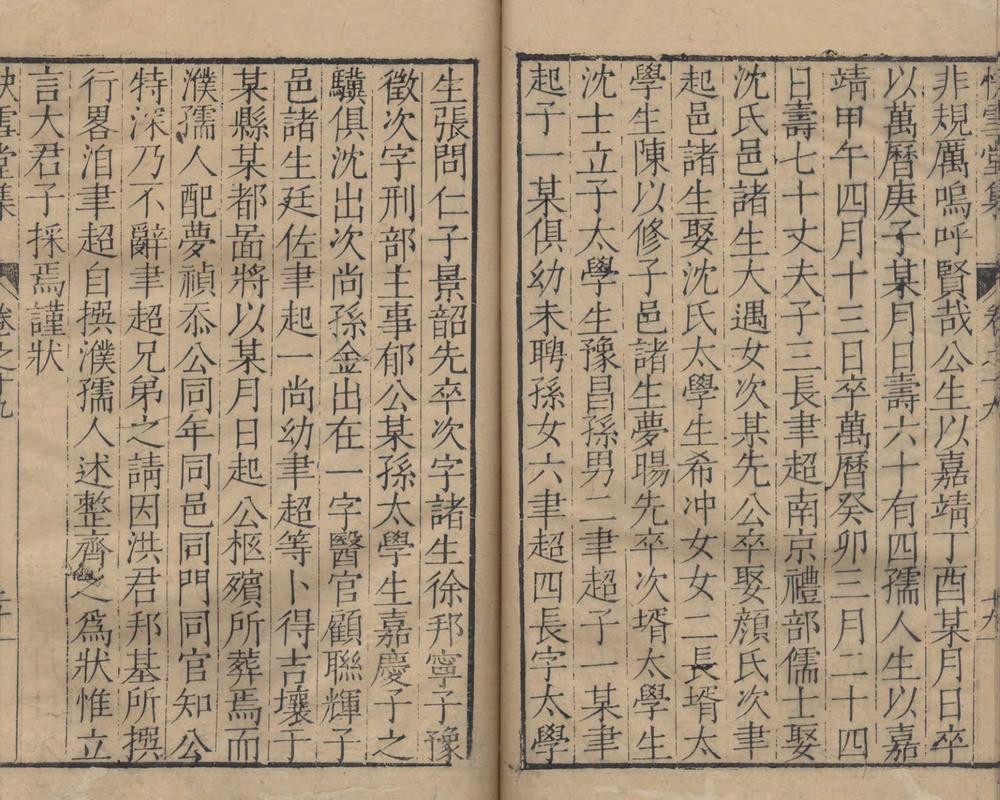 快雪堂集 卷之十九 十九
非規厲嗚呼賢哉公生以嘉靖丁酉某月日卒
以萬曆庚子某月日壽六十有四孺人生以嘉
靖甲午四月十三日卒萬曆癸卯三月二十四
日壽七十丈夫子三長聿超南京禮部儒士娶
沈氏邑諸生大遇女次某先公卒娶顏氏次聿
起邑諸生娶沈氏太學生希冲女女二長壻太
學生陳以修子邑諸生夢暘先卒次壻太學生
沈士立子太學生豫昌孫男二聿超子一某聿
起子一某俱幼未聘孫女六聿超四長字太學
生張問仁子景韶先卒次字諸生徐邦寧子豫
徵次字刑部主事郁公某孫太學生嘉慶子之
驥俱沈出次尚孫金出在一字醫官顧聯輝子
邑諸生廷佐聿起一尚幼聿超等卜得吉壤于
某縣某都啚將以某月日起公柩殯所葬焉而
濮孺人配夢禎忝公同年同邑同門同官知公
特深乃不辭聿超兄弟之請因洪君邦基所撰
行畧洎聿超自撰濮孺人述整齊之爲狀惟立
言大君子採焉謹狀
快雪堂集 卷之十九